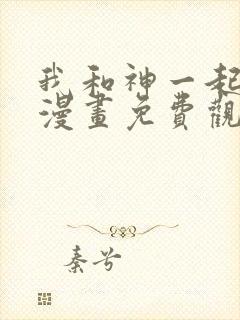 我和神一起
漫畫免費觀
秦兮